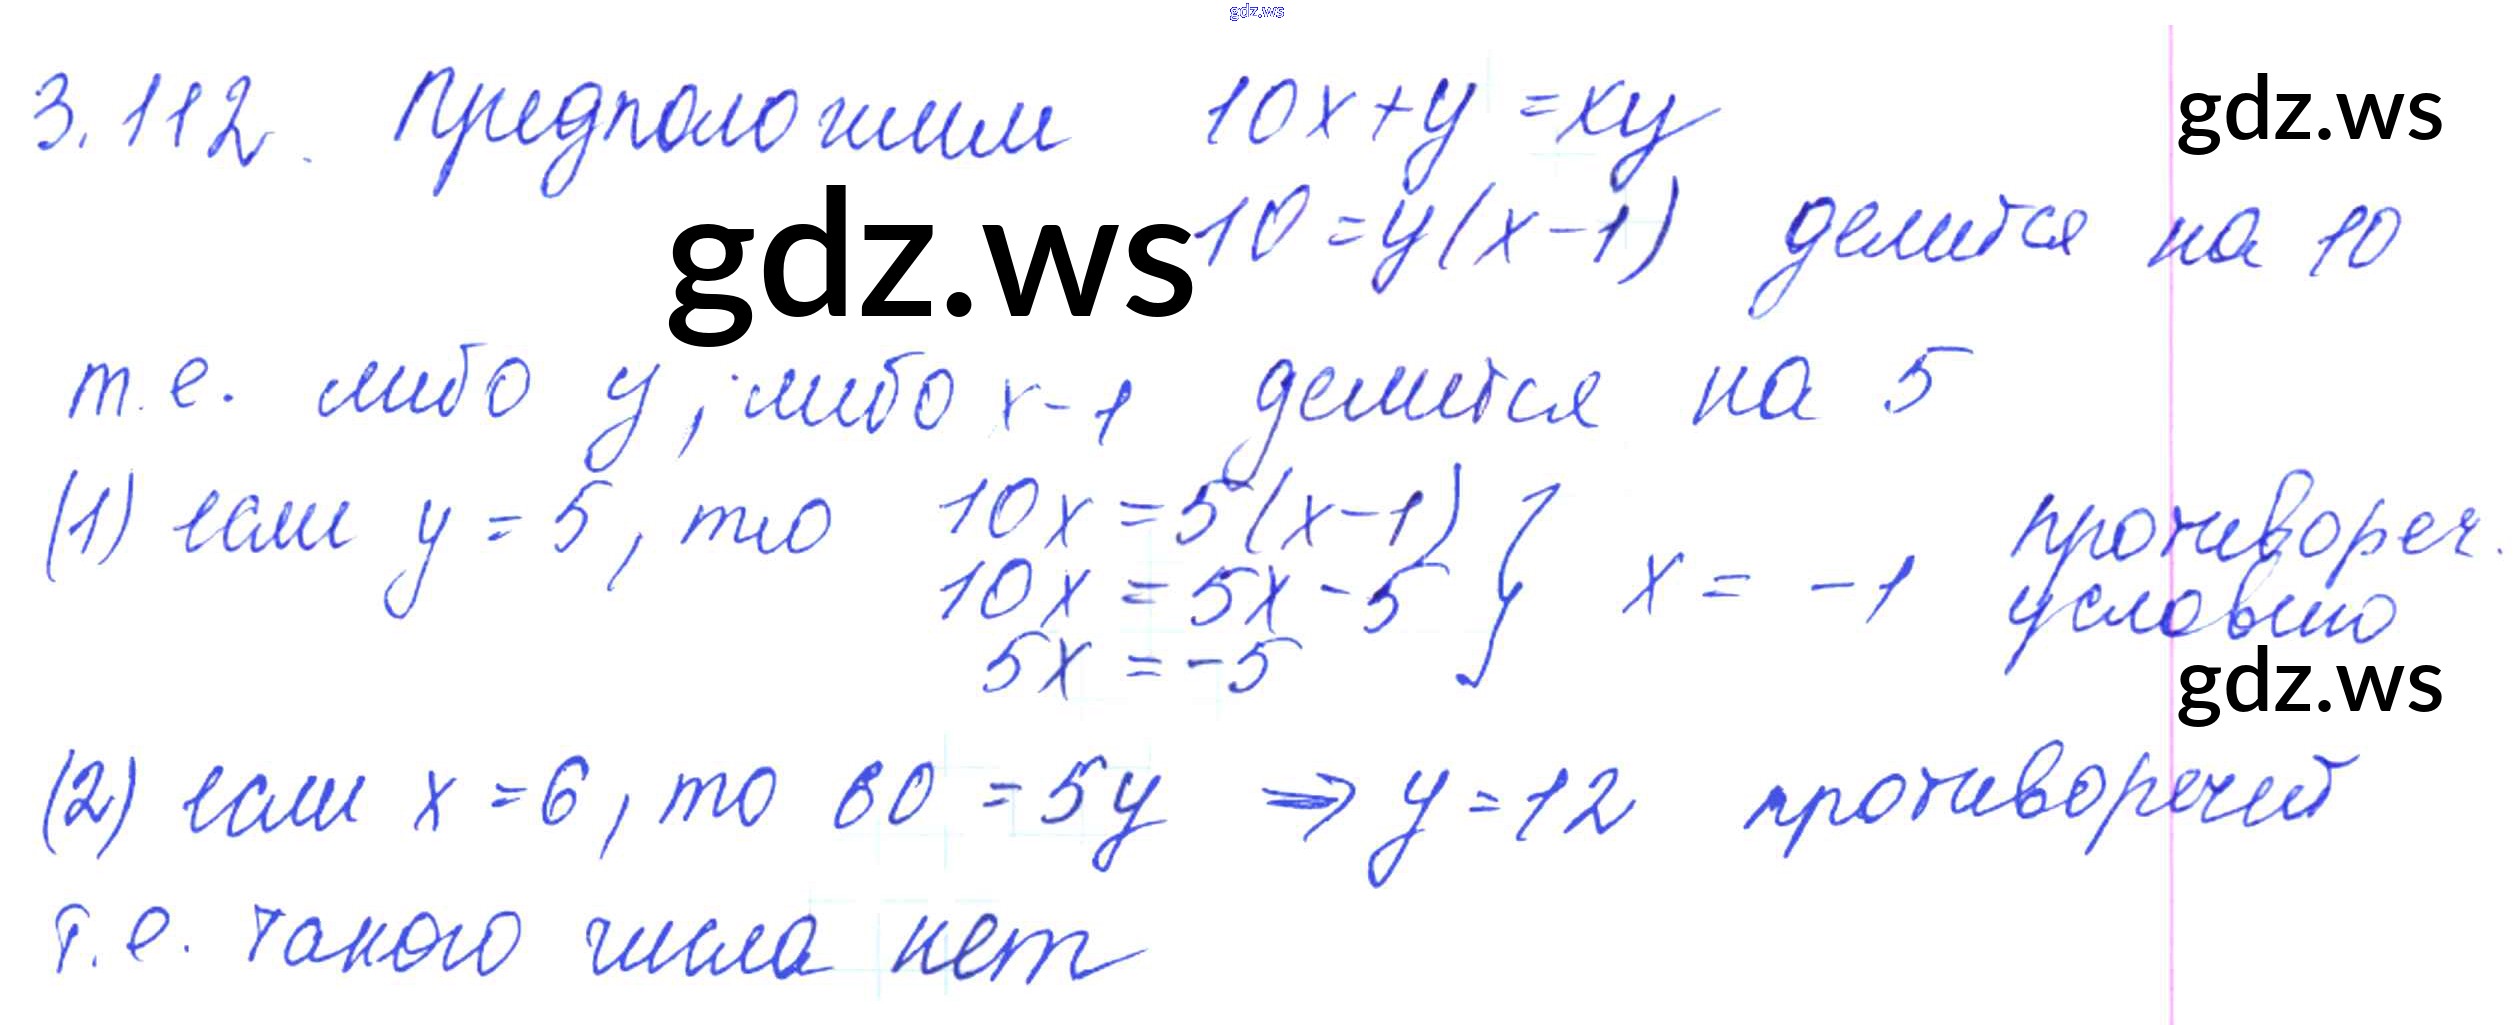 gdz.ws
3.112. Предположим 10x + y = xy
gdz.ws
gdz.ws 10 = y(x - 1) делится на 10
т.е. либо y, либо x - 1 делится на 5
(1) если y = 5, то 10x = 5(x - 1)
10x = 5x - 5 } x = -1, противореч. условию
5x = -5
gdz.ws
(2) если x = 6, то 60 = 5y ⇒ y = 12 противоречит
т.е. такого числа нет